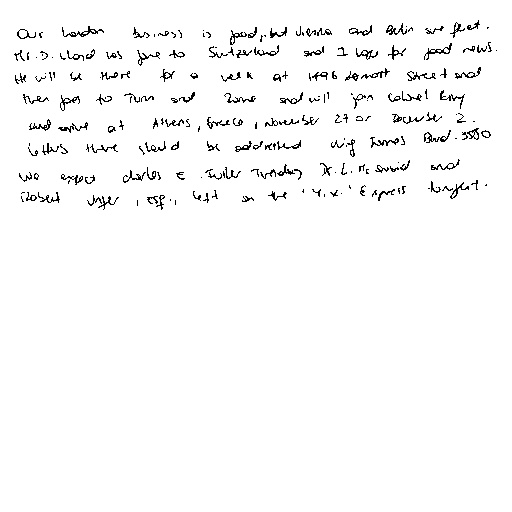 Our London business is good, but Vienna and Berlin are quiet.
Mr. D. Lloyd has gone to Switzerland and I hope for good news.
He will be there for a week at 1496 Zermott Street and
then goes to Turin and Rome and will join Colonel Parry
and arrive at Athens, Greece, November 27 or December 2.
Letters there should be addressed King James Blvd. 3580
We expect Charles E. Fuller Tuesday Dr. L. McQuaid and
Robert Unger, Esq., left on the 'Y.X.' Express tonight.